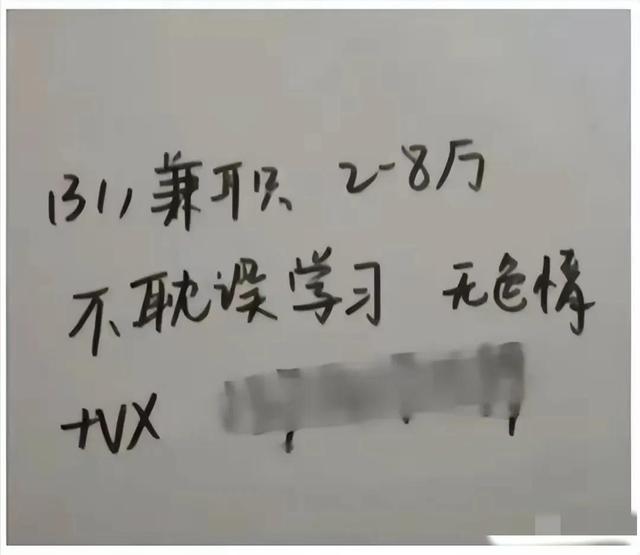 兼职 2-8万
不耽误学习 无色情
+VX